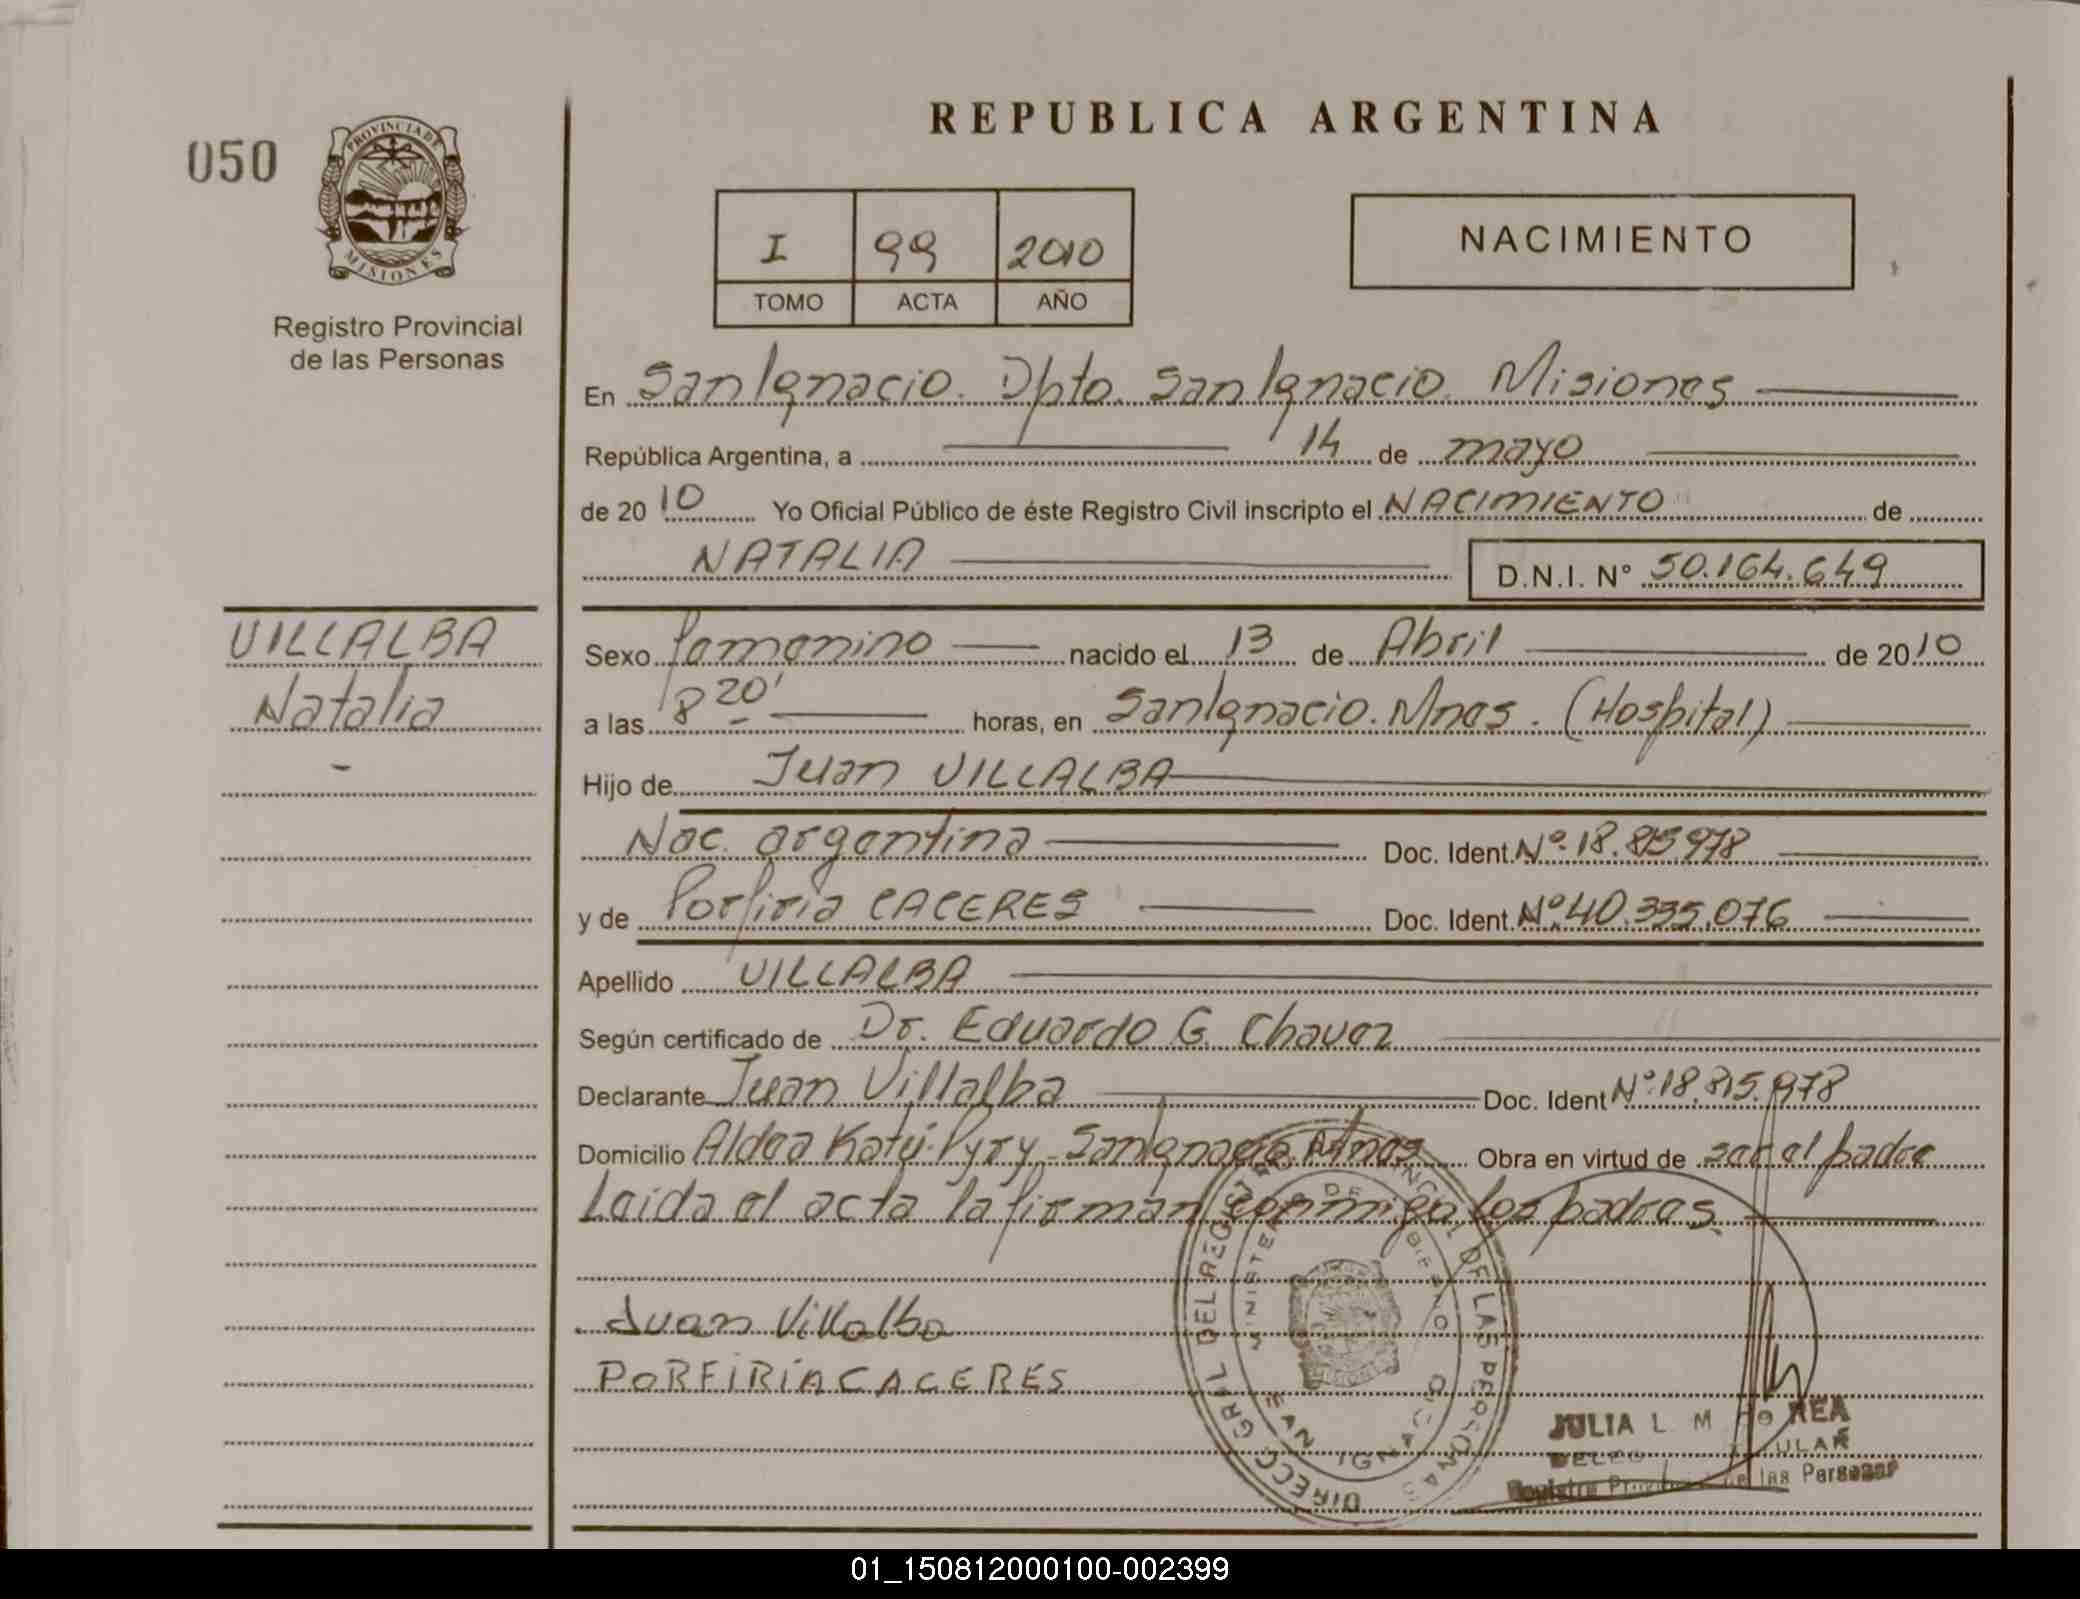 REPUBLICA ARGENTINA
050
PROVINCIA DE
MISIONES
Registro Provincial
de las Personas
I 99 2010
TOMO ACTA AÑO
NACIMIENTO
En San Ignacio. Dpto. San Ignacio. Misiones
República Argentina, a 14 de mayo
de 2010 Yo Oficial Público de éste Registro Civil inscripto el NACIMIENTO de
NATALIA D.N.I. N° 50.164.649
VILLALBA
Natalia
Sexo femenino nacido el 13 de Abril de 2010
a las 8 20' horas, en San Ignacio. Mnes. (Hospital)
Hijo de Juan VILLALBA
Nac. argentina Doc. Ident. Nº 18.815.978
y de Porfiria CACERES Doc. Ident. Nº 40.335.076
Apellido VILLALBA
Según certificado de Dr. Eduardo G. Chavez
Declarante Juan Villalba Doc. Ident Nº 18.815.978
Domicilio Aldea Katú-Pyry-San Ignacio. Mnes Obra en virtud de ser el padre
Leida el acta la firman conmigo los padres.
Juan Villalba
PORFIRIA CACERES
DIRECC. GRAL. DEL REGISTRO PROVINCIAL DE LAS PERSONAS
MINISTERIO DE GOBIERNO
SAN IGNACIO
JULIA L. M
Registro Provincial de las Personas
01_150812000100-002399